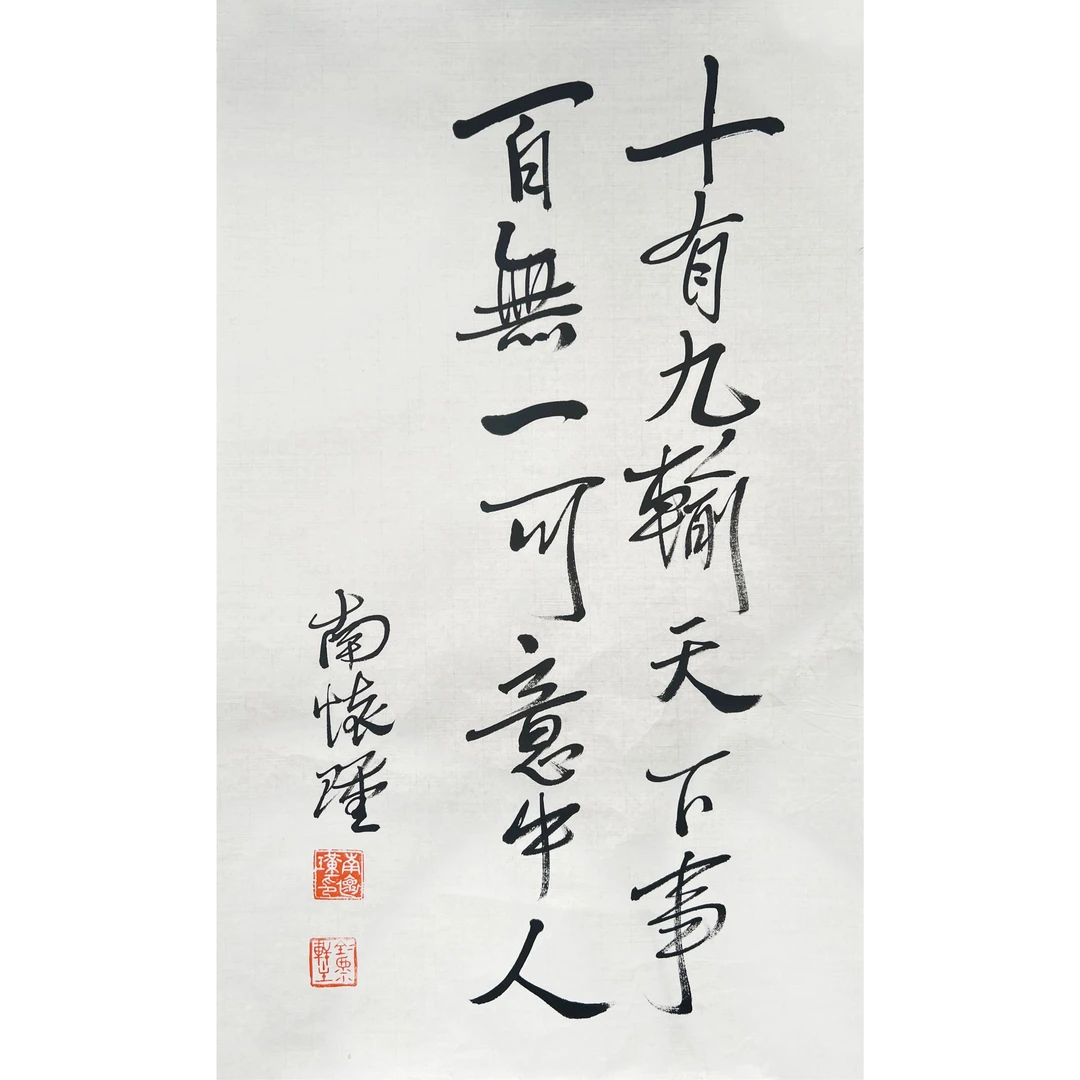 十有九輸天下事
百無一可意中人
南懷瑾
南懷瑾印